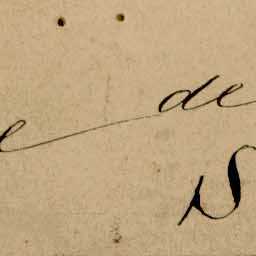 e de
S